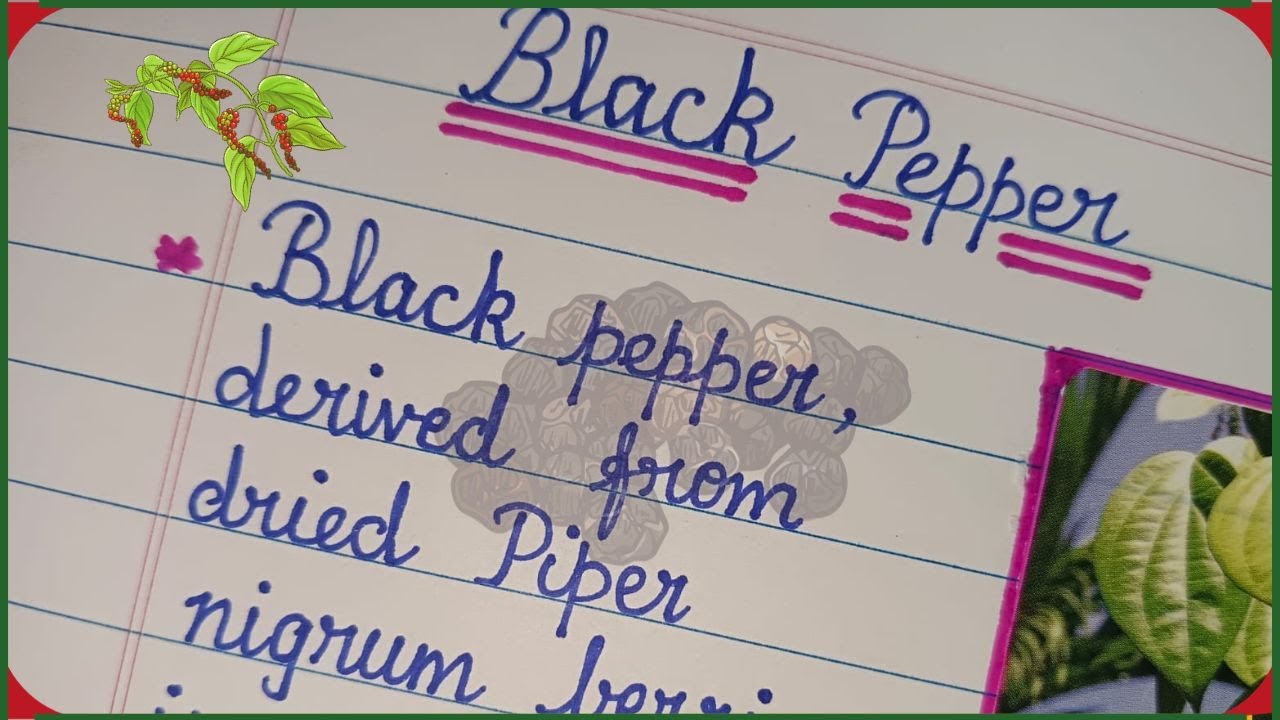 Black Pepper
Black pepper,
derived from
dried Piper
nigrum